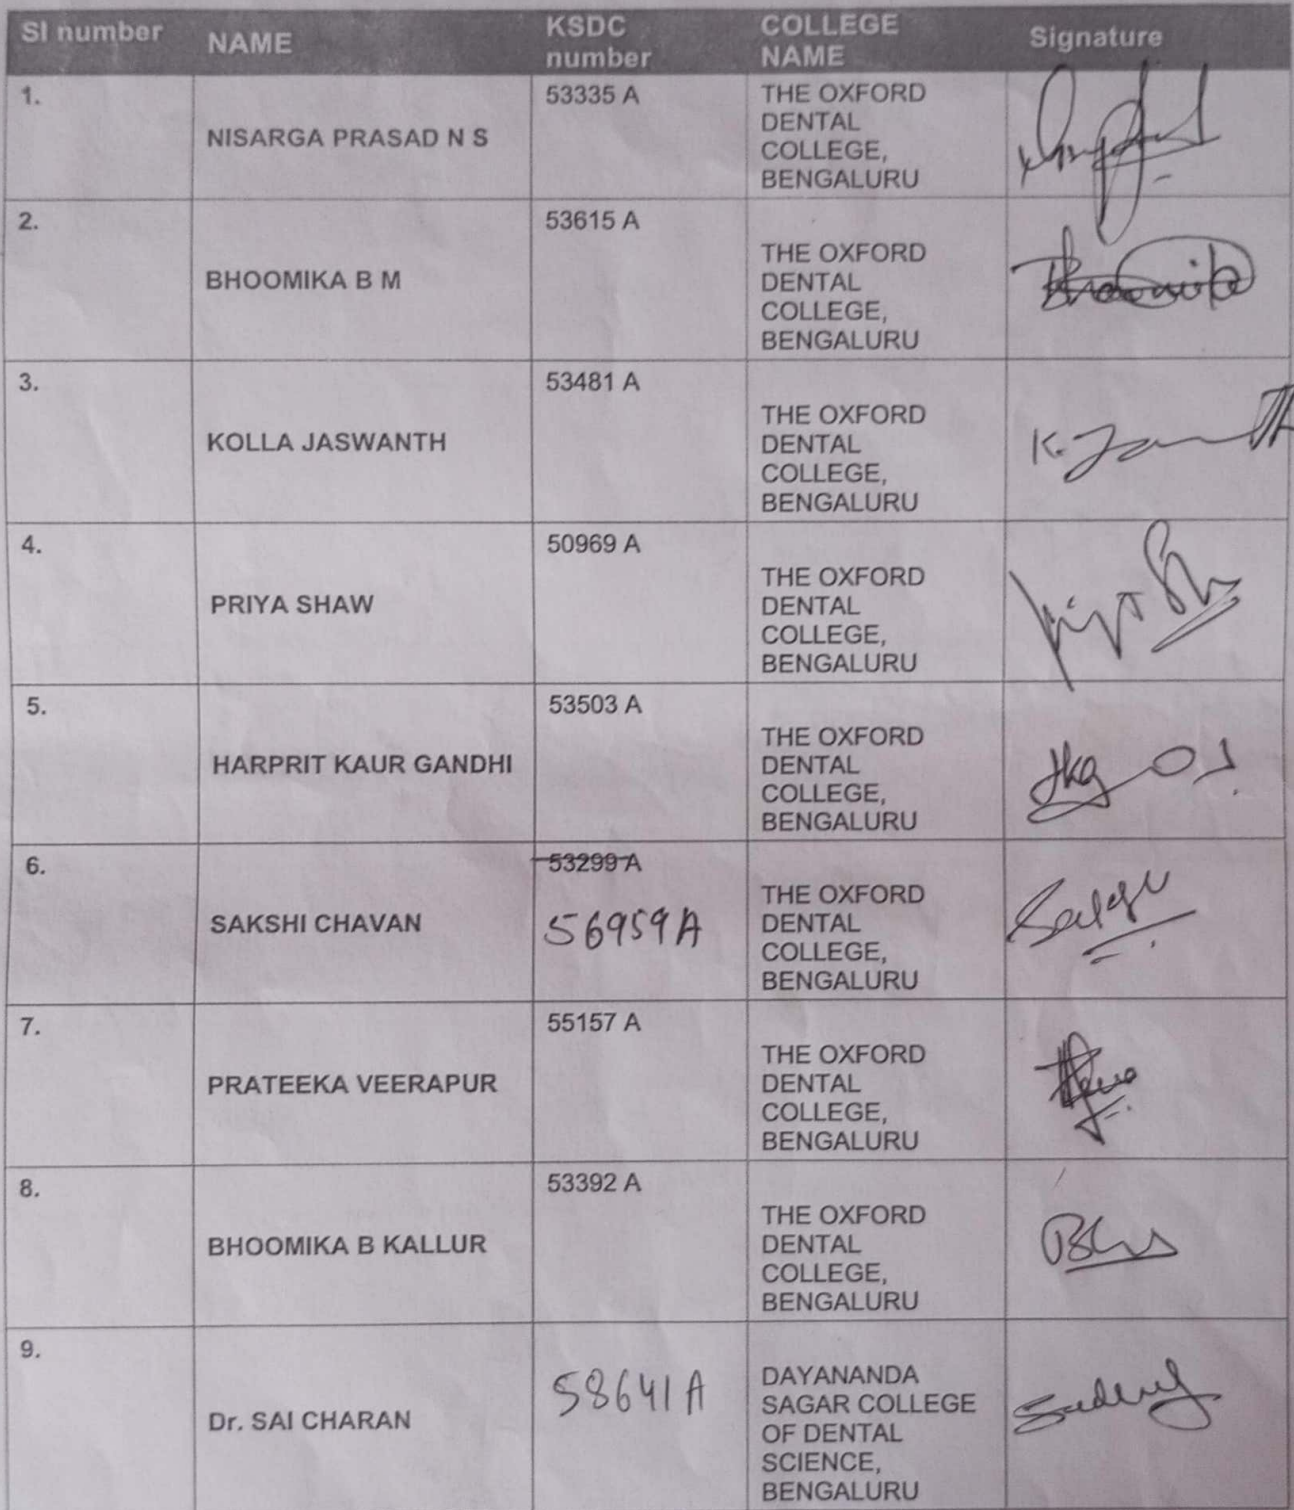 Sl number NAME KSDC number COLLEGE NAME Signature
1.
NISARGA PRASAD N S
53335 A
THE OXFORD
DENTAL
COLLEGE,
BENGALURU
2.
BHOOMIKA B M
53615 A
THE OXFORD
DENTAL
COLLEGE,
BENGALURU
Bhoomika
3.
KOLLA JASWANTH
53481 A
THE OXFORD
DENTAL
COLLEGE,
BENGALURU
4.
PRIYA SHAW
50969 A
THE OXFORD
DENTAL
COLLEGE,
BENGALURU
5.
HARPRIT KAUR GANDHI
53503 A
THE OXFORD
DENTAL
COLLEGE,
BENGALURU
6.
SAKSHI CHAVAN
53299 A
56959A
THE OXFORD
DENTAL
COLLEGE,
BENGALURU
7.
PRATEEKA VEERAPUR
55157 A
THE OXFORD
DENTAL
COLLEGE,
BENGALURU
8.
BHOOMIKA B KALLUR
53392 A
THE OXFORD
DENTAL
COLLEGE,
BENGALURU
9.
Dr. SAI CHARAN
58641A
DAYANANDA
SAGAR COLLEGE
OF DENTAL
SCIENCE,
BENGALURU